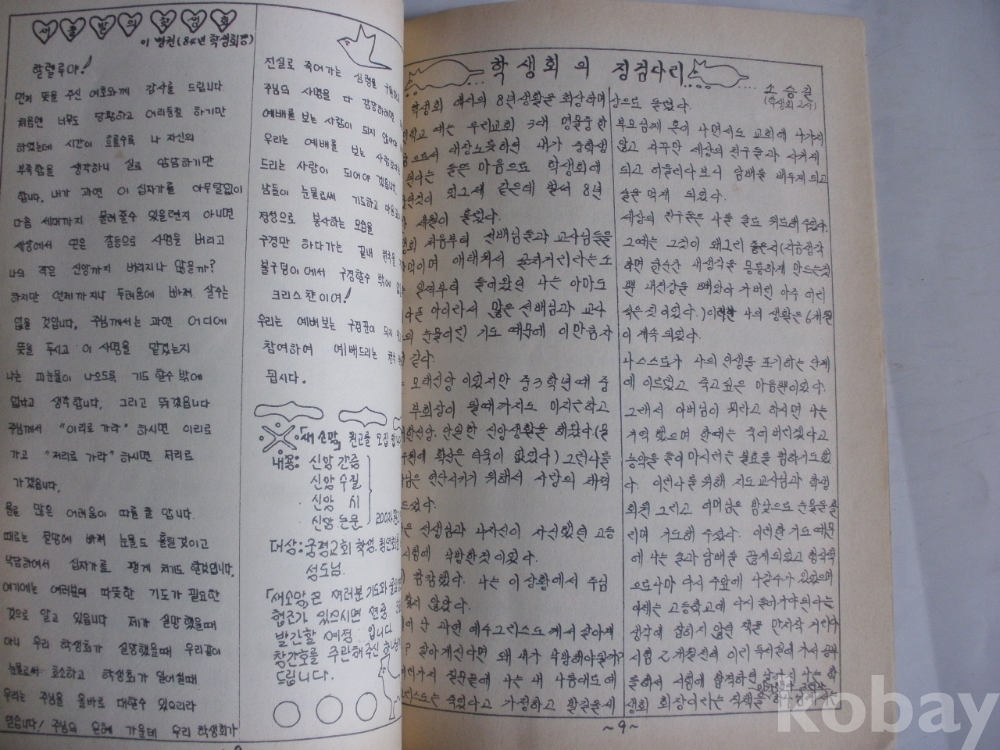 새롭 밤의 학생회
이 병권 (84년 학생회장)
할렐루야!
먼저 뜻을 주신 여호와께 감사를 드립니다
처음엔 너무도 당황하고 어리둥절 하기만
하였는데 시간이 흐를수록 나 자신의
부족함을 생각하니 실로 암담하기만
합니다. 내가 과연 이 십자가를 아무말없이
다음 세대까지 물려줄수 있을런지 아니면
세상에서 얻은 갈등으로 사명을 버리고
나의 작은 신앙까지 버리지나 않을까?
하지만 언제까지나 두려움에 빠져 살수는
없을 것입니다. 주님께서는 과연 어디에
뜻을 두시고 이 사명을 맡겼는지
나는 피눈물이 나오도록 기도 할수 밖에
없다고 생각합니다. 그리고 뛰겠읍니다
주님께서 "이리로 가라" 하시면 이리로
가고 "저리로 가라" 하시면 저리로
가겠읍니다.
물론 많은 어려움이 따를 줄 압니다.
때로는 절망에 빠져 눈물도 흘릴것이고
낙담하여서 십자가를 팽개 치기도 할것입니다.
여기에는 여러분의 따뜻한 기도가 필요한
것으로 알고 있읍니다 제가 실망했을때
아니 우리 학생회가 실망했을때 우리같이
눈물로써 호소하고 학생회가 일어설때
우리는 주님을 올바로 대할수 있으리라
믿습니다! 주님의 은혜 가운데 우리 학생회가
진실로 죽어가는 심령을
주님의 사명을 다 감당하려면
예배를 보는 사람이 되지
우리는 예배를 보는
드리는 사람이 되어야 겠읍니다
남들이 눈물로써 기도하고
정성으로 봉사하는 모습을
구경만 하다가는 끝내
불구덩이에서 구경할수 밖에
크리스챤이여!
우리는 예배보는 구경꾼이 되지
참여하여 예배드리는
됩시다.
「새소망」 원고를 모집
내용: 신앙 간증
신앙 수필
신앙 시
신앙 논문
대상: 궁정교회 학생, 청년회
성도님.
「새소망」은 여러분 기도와
협조가 있으시면 연중
발간할 예정 입니다
창간호를 주관해주신 하나님
드립니다.
학생회의 징검다리
소승길
(학생회 2기)
학생회 에서의 8년생활을 회상하며
하고 에는 우리교회 3대 명물중 한
으로서 대장노릇하던 내가 중학생
된다는 들뜬 마음으로 학생회에
것이 되그제 같은데 활서 8년
세월이 흘렀다.
회 처음부터 선배님들과 교사님들은
덕이며 애태워서 골치거리라는 소
일찍부터 들어왔던 나는 아마도
다른 아이라서 많은 선배님과 교사
의 눈물어린 기도 때문에 이만큼 자
같다.
모태신앙 이었지만 중3학년때 중
부회장이 될때까지도 미지근하고
한신앙, 안일한 신앙생활을 해왔다(물
구원에 확신은 더욱이 없었다) 그런나를
님은 연단시키기 위해서 사망의 하락
드렸다.
은 선생님과 나자신이 자신있던 고등
시험에 낙방한것 이었다.
캄캄했다. 나는 이 상황에서 주님
찾지 않았다.
이란 과연 예수그리스도께서 살아계
? 살아계신다면 왜 내가 낙방해야될까?
여러가지 질문들에 나는 내 나름대로에
리스도는 죽었다고 가정하고 할짓못시
상으로 돌렸다.
부모님께 혼이 나면서도 교회에 나가지
않고 자꾸만 세상의 친구들과 사귀게
되고 어울리다보니 담배를 배우게 되고
술을 먹게 되었다.
세상의 친구들은 나를 몹도 위로해 주었다.
그때는 그것이 왜그리 좋은지(지금생각
하면 한순간 내생각을 몽롱하게 만드는것
뿐 내건강을 빼앗아 가버린 아주 어리
석은것이었다.) 이러한 나의 생활은 6개월
이 계속 되었다.
나스스로가 나의 인생을 포기하는 단계
에 이르렀고 죽고싶은 마음뿐이었다.
그래서 아버님이 뭐라고 하시면 나는
거역 했으며 한때는 죽어버리겠다고
농약을 들어 마시려는 발로를 범하기도했
다. 이런나를 위해 지도교사님과 학생
회원 그리고 어머님은 밤낮으로 눈물을흘
리며 기도해 주셨다. 이러한 기도 때문
에 나는 술과 담배를 끊게되었고 형식적
으로나마 다시 주일에 나갈수가 있었으며
이제는 고등학교에 다시 들어가야 된다는
생각에 잡히지 않던 책을 만지작 거리다
시험 2개월전에 이리 독서실에 가서 공부
를 해서 시험에 합격하면 살아서 나는 학
생회 회장이라는 직책을
~9~
kobay